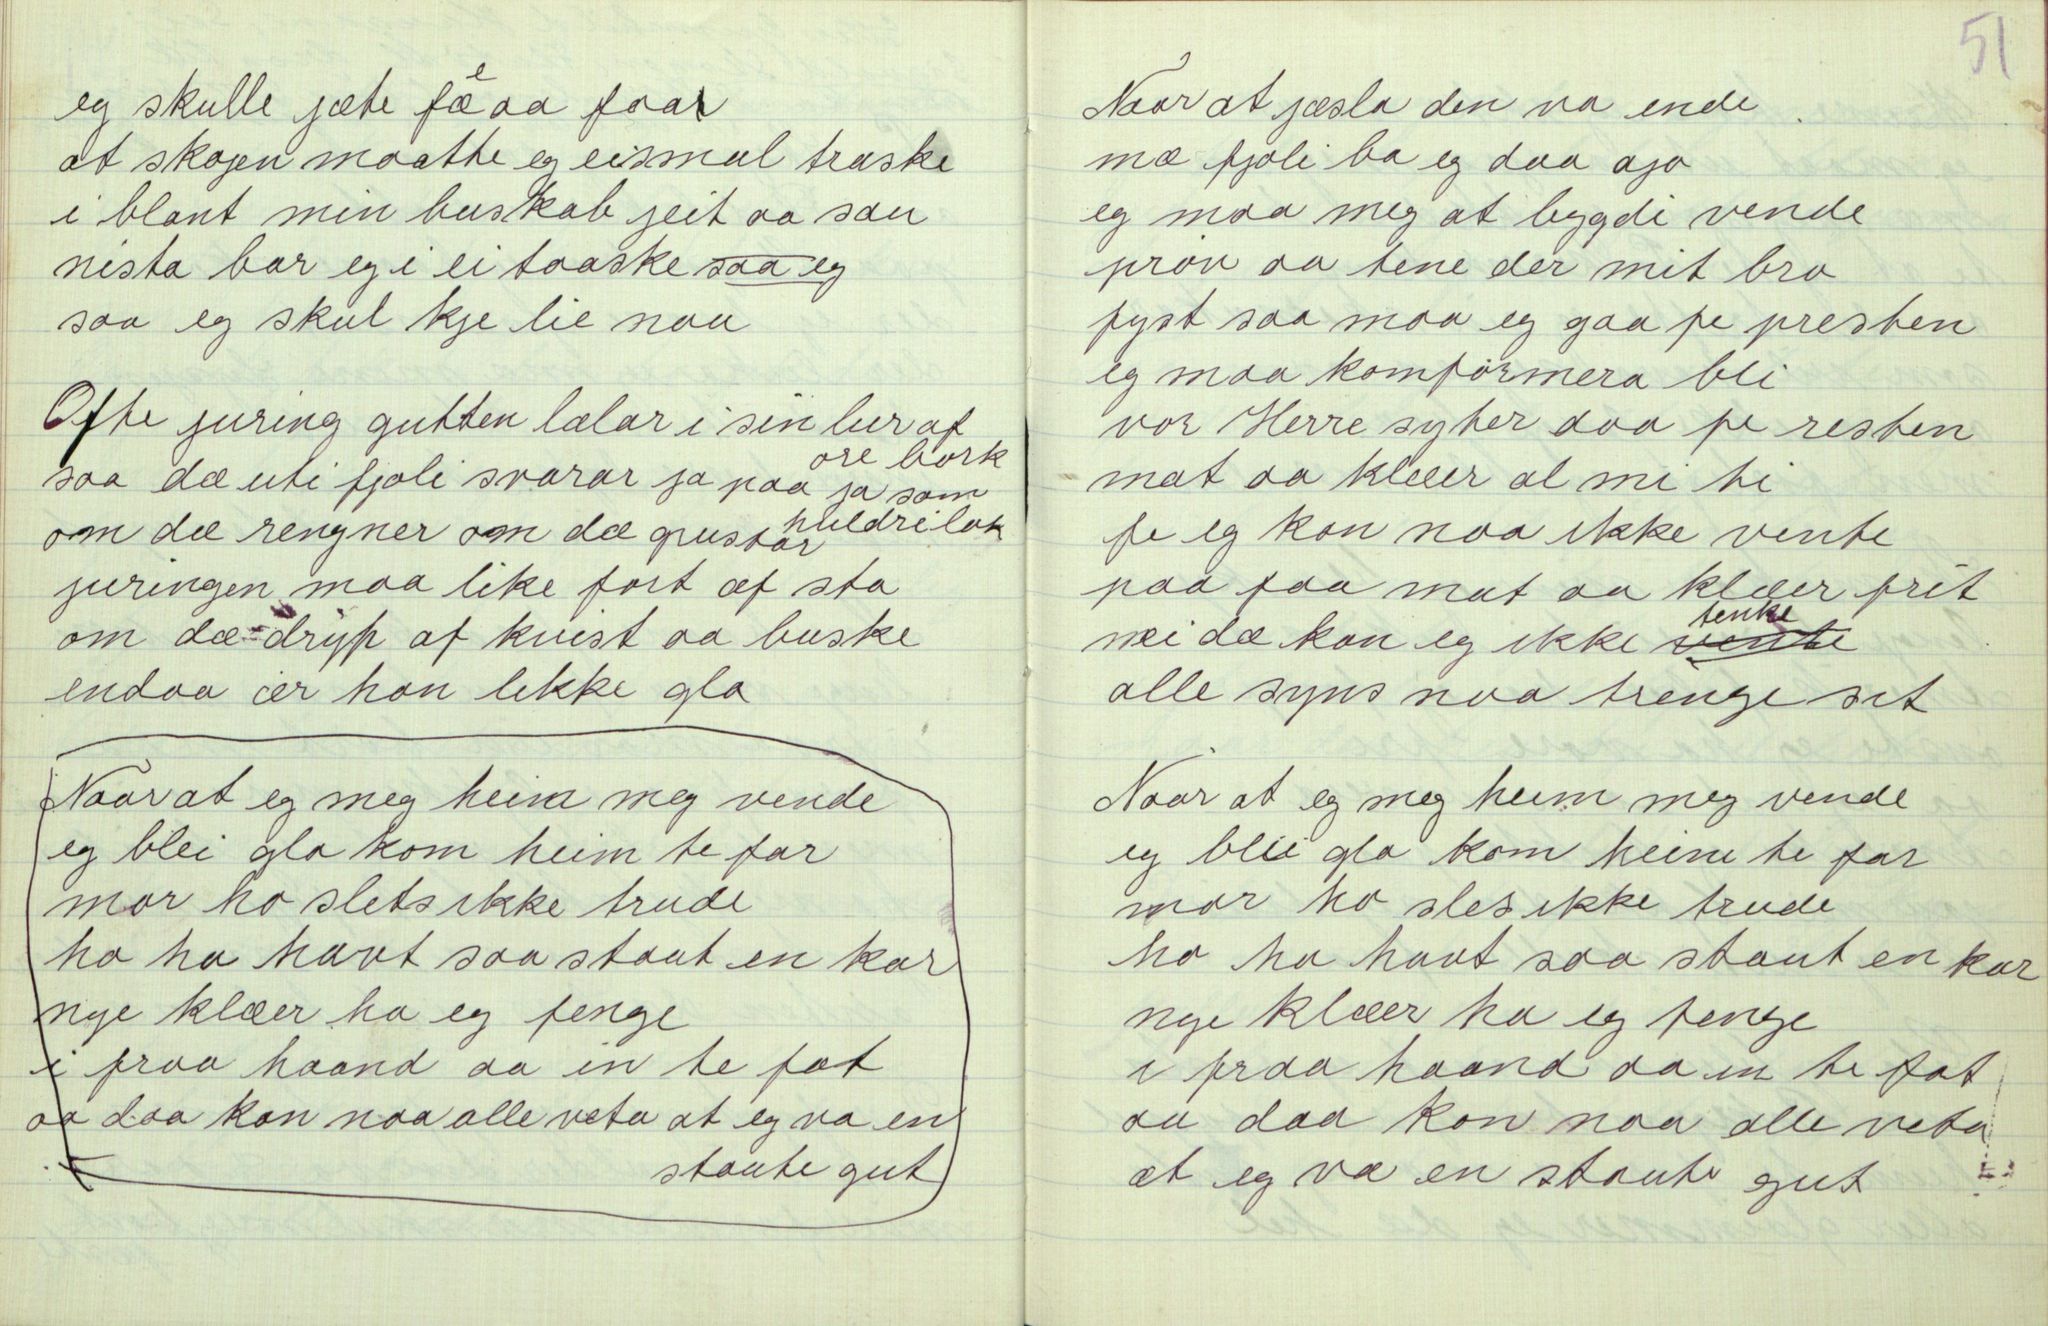 eg skulle jæte fæe aa faar
at skogen maatte eg eismal traske
i blant min buskab jeit aa sau
nista bar eg i ei taaske saa eg
saa eg skul kje lie nau
Ofte juring gutten lælar i sin lur af
ore bork
saa dæ uti fjøli svarar ja paa ja som
huldrilok
om dæ rengner om dæ gustar
juringen maa like fort æf sta
om dæ dryp af kvist aa buske
endaa ær han likke gla
Naar at eg meg heim meg vende
eg blei gla kom heim te far
mor ho slets ikke trude
ho ha havt saa staut en kar
nye klæer ha eg fenge
i fraa haand aa in te fot
aa daa kan naa alle veta at eg va en
staute gut
51
Naar at jæsla den va ende
mæ fjøli ba eg daa ajø
eg maa meg at bygdi vende
prøv aa tene der mit brø
fyst saa maa eg gaa fe presten
eg maa komførmera bli
vor Herre syter daa fe resten
mat aa klæer al mi ti
fe eg kan naa ikke vente
paa faa mat aa klæer frit
nei dæ kan eg ikke vente tenke
alle syns naa trenge sit
Naar at eg meg heim meg vende
eg blei gla kom heim te far
mor ho sles ikke trude
ho ha havt saa staut en kar
nye klæer ha eg fenge
i fraa haand aa in te fot
aa daa kan naa alle veta
at eg va en staute gut